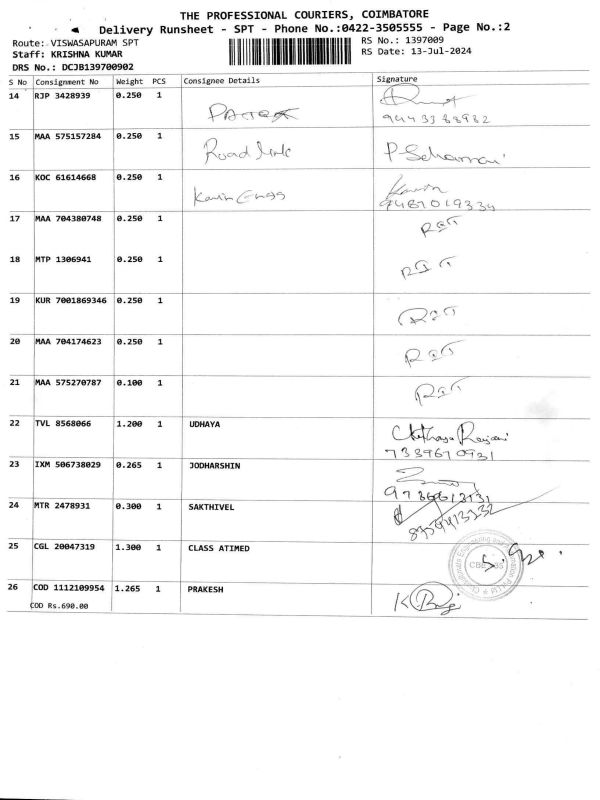 THE PROFESSIONAL COURIERS, COIMBATORE
Delivery Runsheet - SPT - Phone No.:0422-3505555 - Page No.:2
Route: VISWASAPURAM SPT
RS No.: 1397009
Staff: KRISHNA KUMAR
RS Date: 13-Jul-2024
DRS No.: DCJB139700902
S No Consignment No Weight PCS Consignee Details Signature
14 RJP 3428939 0.250 1
9443388982
15 MAA 575157284 0.250 1 Road link
16 KOC 61614668 0.250 1 Kavin Engg Kavin
9487019334
17 MAA 704380748 0.250 1
18 MTP 1306941 0.250 1
19 KUR 7001869346 0.250 1
20 MAA 704174623 0.250 1
21 MAA 575270787 0.100 1
22 TVL 8568066 1.200 1 UDHAYA
7339670931
23 IXM 506738029 0.265 1 JODHARSHIN
24 MTR 2478931 0.300 1 SAKTHIVEL
25 CGL 20047319 1.300 1 CLASS ATIMED
26 COD 1112109954 1.265 1 PRAKESH
COD Rs.690.00